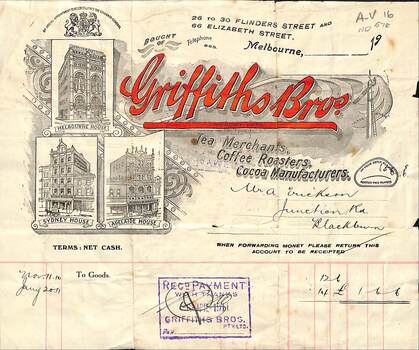 BY SPECIAL APPOINTMENT
26 TO 30 FLINDERS STREET AND
66 ELIZABETH STREET.
A-V 16
BOUGHT OF
Telephone
Melbourne, 19
Griffiths Bros.
MELBOURNE HOUSE
Tea Merchants.
Coffee Roasters.
Cocoa Manufacturers.
SYDNEY HOUSE
ADELAIDE HOUSE
Mr A Erickson
Junction Rd
Blackburn
TERMS: NET CASH.
WHEN FORWARDING MONEY PLEASE RETURN THIS
ACCOUNT TO BE RECEIPTED
Nov. 11. 10 To Goods. 12 6
Jany 20 11 14 £ 1 6 6
RECD PAYMENT
WITH THANKS
GRIFFITHS BROS.
PTY. LTD.
Per